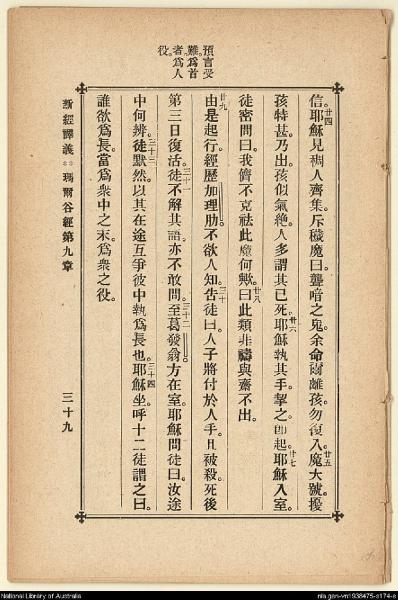 預言受
難。爲首
者爲人
役。
信。廿四耶穌見稠人齊集。斥穢魔曰。聾喑之鬼。余命爾離孩。勿復入。廿五魔大號。擾
孩特甚。乃出。孩似氣絶。人多謂其已死。廿六耶穌執其手。掔之。卽起。廿七耶穌入室。
徒密問曰。我儕不克祛此魔。何歟。廿八曰。此類非禱與齋不出。
廿九由是起行。經歷加理肋。不欲人知。三十吿徒曰。人子將付於人手。且被殺。死後
第三日復活。三十一徒不解其語。亦不敢問。三十二至葛發翁。方在室。耶穌問徒曰。汝途
中何辨。三十三徒默然。以其在途互爭。彼中孰爲長也。三十四耶穌坐。呼十二徒。謂之曰。
誰欲爲長。當爲衆中之末。爲衆之役。
新經譯義 瑪爾谷經第九章 三十九
National Library of Australia
nla.gen-vn1938475-s174-e